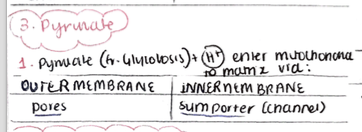 3. Pyruvate
1. Pyruvate (fr. Glycolysis) + H⁺ enter mitochondria
to matrix via:
OUTER MEMBRANE INNER MEMBRANE
pores symporter (channel)